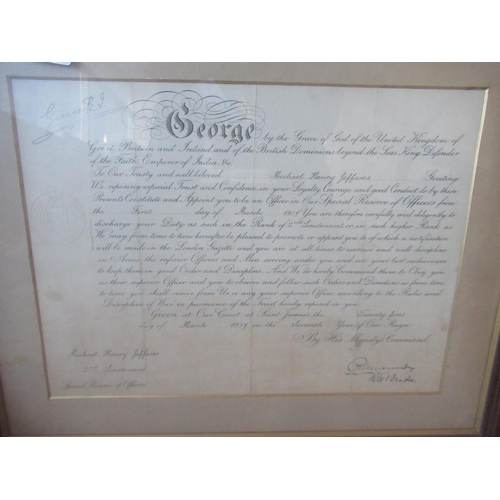 George R.I.
George by the Grace of God of the United Kingdom of
Great Britain and Ireland and of the British Dominions beyond the Seas King Defender
of the Faith, Emperor of India, &c.
To Our Trusty and well beloved Michael Henry Jefferies Greeting:
We, reposing especial Trust and Confidence in your Loyalty, Courage, and good Conduct, do by these
Presents Constitute and Appoint you to be an Officer in Our Special Reserve of Officers from
the First day of March 1917 You are therefore carefully and diligently to
discharge your Duty as such in the Rank of 2nd Lieutenant or in such higher Rank as
We may from time to time hereafter be pleased to promote or appoint you to, of which a notification
will be made in the London Gazette, and you are at all times to exercise and well discipline
in Arms, the inferior Officers and Men serving under you and use your best endeavours
to keep them in good Order and Discipline. And We do hereby Command them to Obey you
as their superior Officer and you to observe and follow such Orders and Directions as from time
to time you shall receive from Us, or any your superior Officer, according to the Rules and
Discipline of War, in pursuance of the Trust hereby reposed in you.
Given at Our Court, at Saint James's, the Twenty first
day of March 1917 in the Seventh Year of Our Reign
By His Majesty's Command.
Michael Henry Jefferies
2nd Lieutenant
Special Reserve of Officers